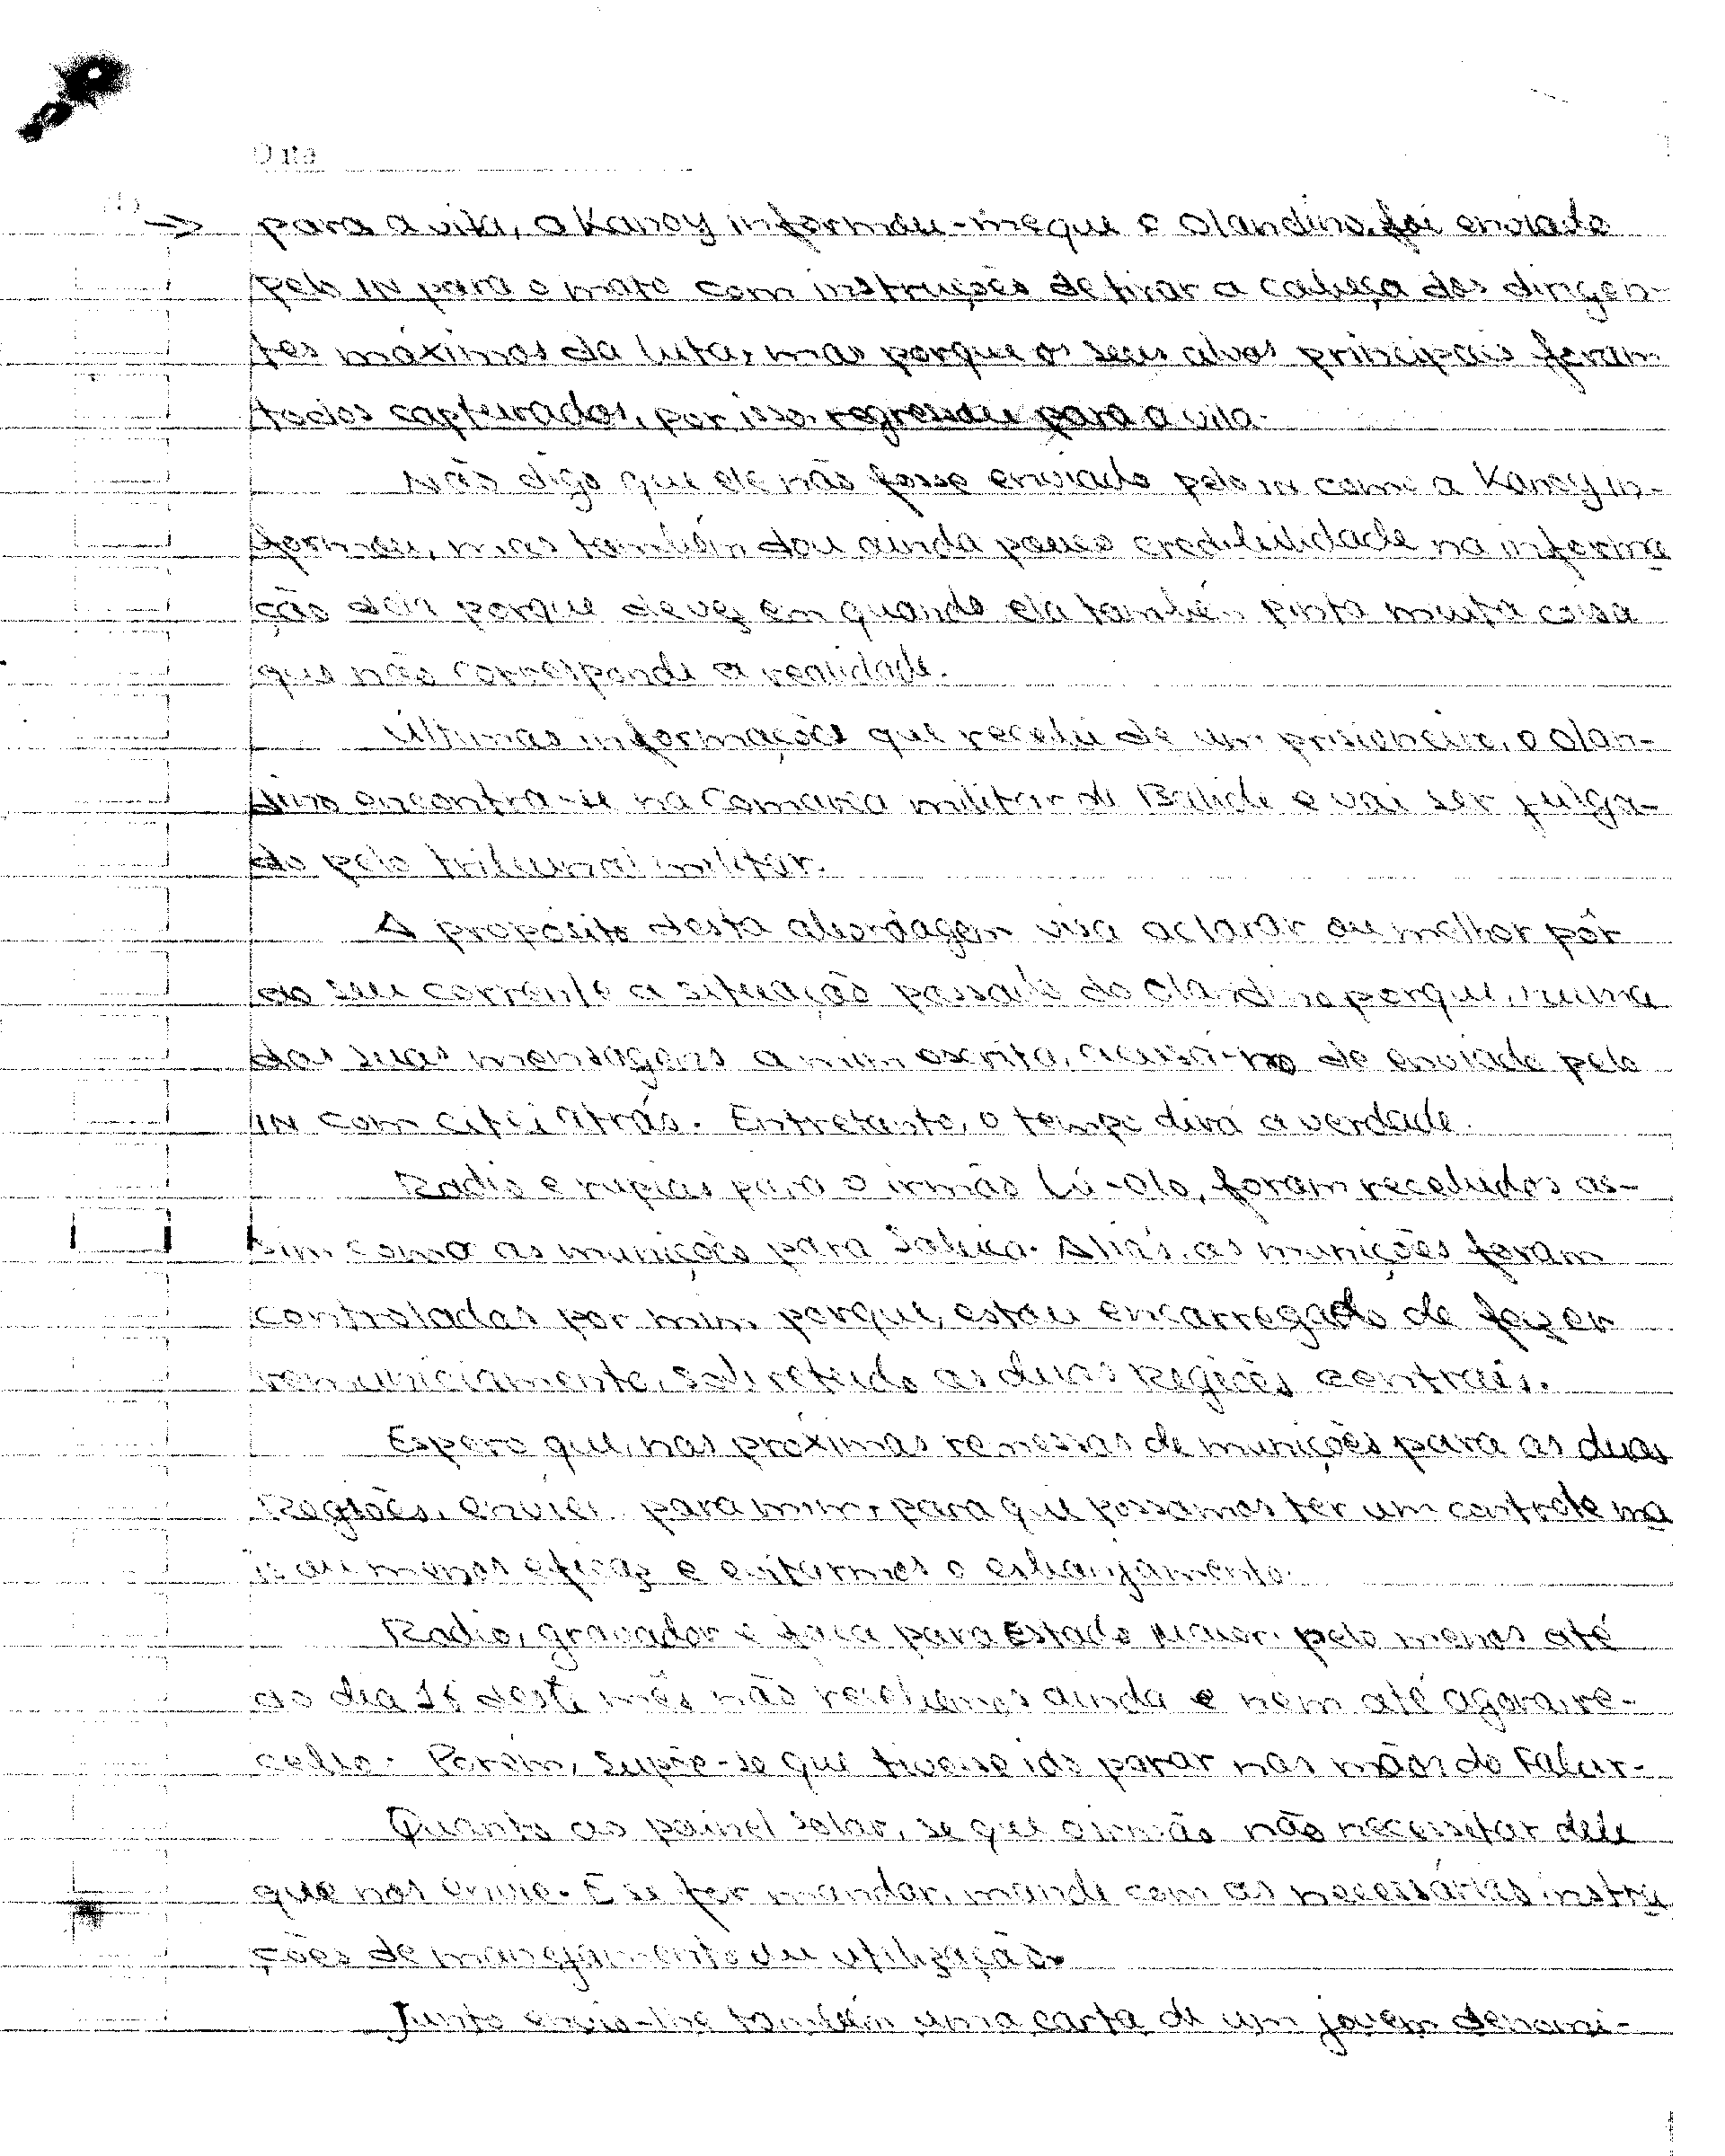 Data
→ para a vila, a Kanoy informou-me que o Olandino, foi enviado
pelo IN para o mato com instruções de tirar a cabeça dos dirigen-
tes máximos da luta, mas porque os seus alvos principais foram
todos capturados, por isso, regressou para a vila.
Não digo que ele não fosse enviado pelo IN como a Kanoy in-
formou, mas também dou ainda pouco credibilidade na informa
ção dela porque de vez em quando ela também pinta muita coisa
que não corresponde a realidade.
Últimas informações que recebi de um prisioneiro, o Olan-
dino encontra-se na Comarca militar de Balide e vai ser julga-
do pelo tribunal militar.
A propósito desta abordagem visa aclarar ou melhor pôr
ao seu corrente a situação passado do Olandino porque, numa
das suas mensagens a mim escrita, acusa-no de enviado pelo
IN com citei atrás. Entretanto, o tempo dirá a verdade.
Radio e rupias para o irmão Lú-Olo, foram recebidos as-
sim como as munições para Sabica. Aliás, as munições foram
controladas por mim porque, estou encarregado de fazer
remuniciamento, sobretudo as duas Regiões centrais.
Espero que, nas próximas remessas de munições para as duas
Regiões, enviei para mim, para que possamos ter um controle ma
is ou menos eficaz e evitarmos o esbanjamento.
Radio, gravador e faca para Estado Maior, pelo menos até
ao dia 15 deste mês não recebemos ainda e nem até agora, re-
cebo. Porém, supõe-se que tivesse ido parar nas mãos do Falur.
Quanto ao painel solar, se que o irmão não necessitar dele
que nos envie. E se for mandar, mande com as necessárias instru
ções de manejamento ou utilização.
Junto envio-lhe também uma carta de um jovem denomi-